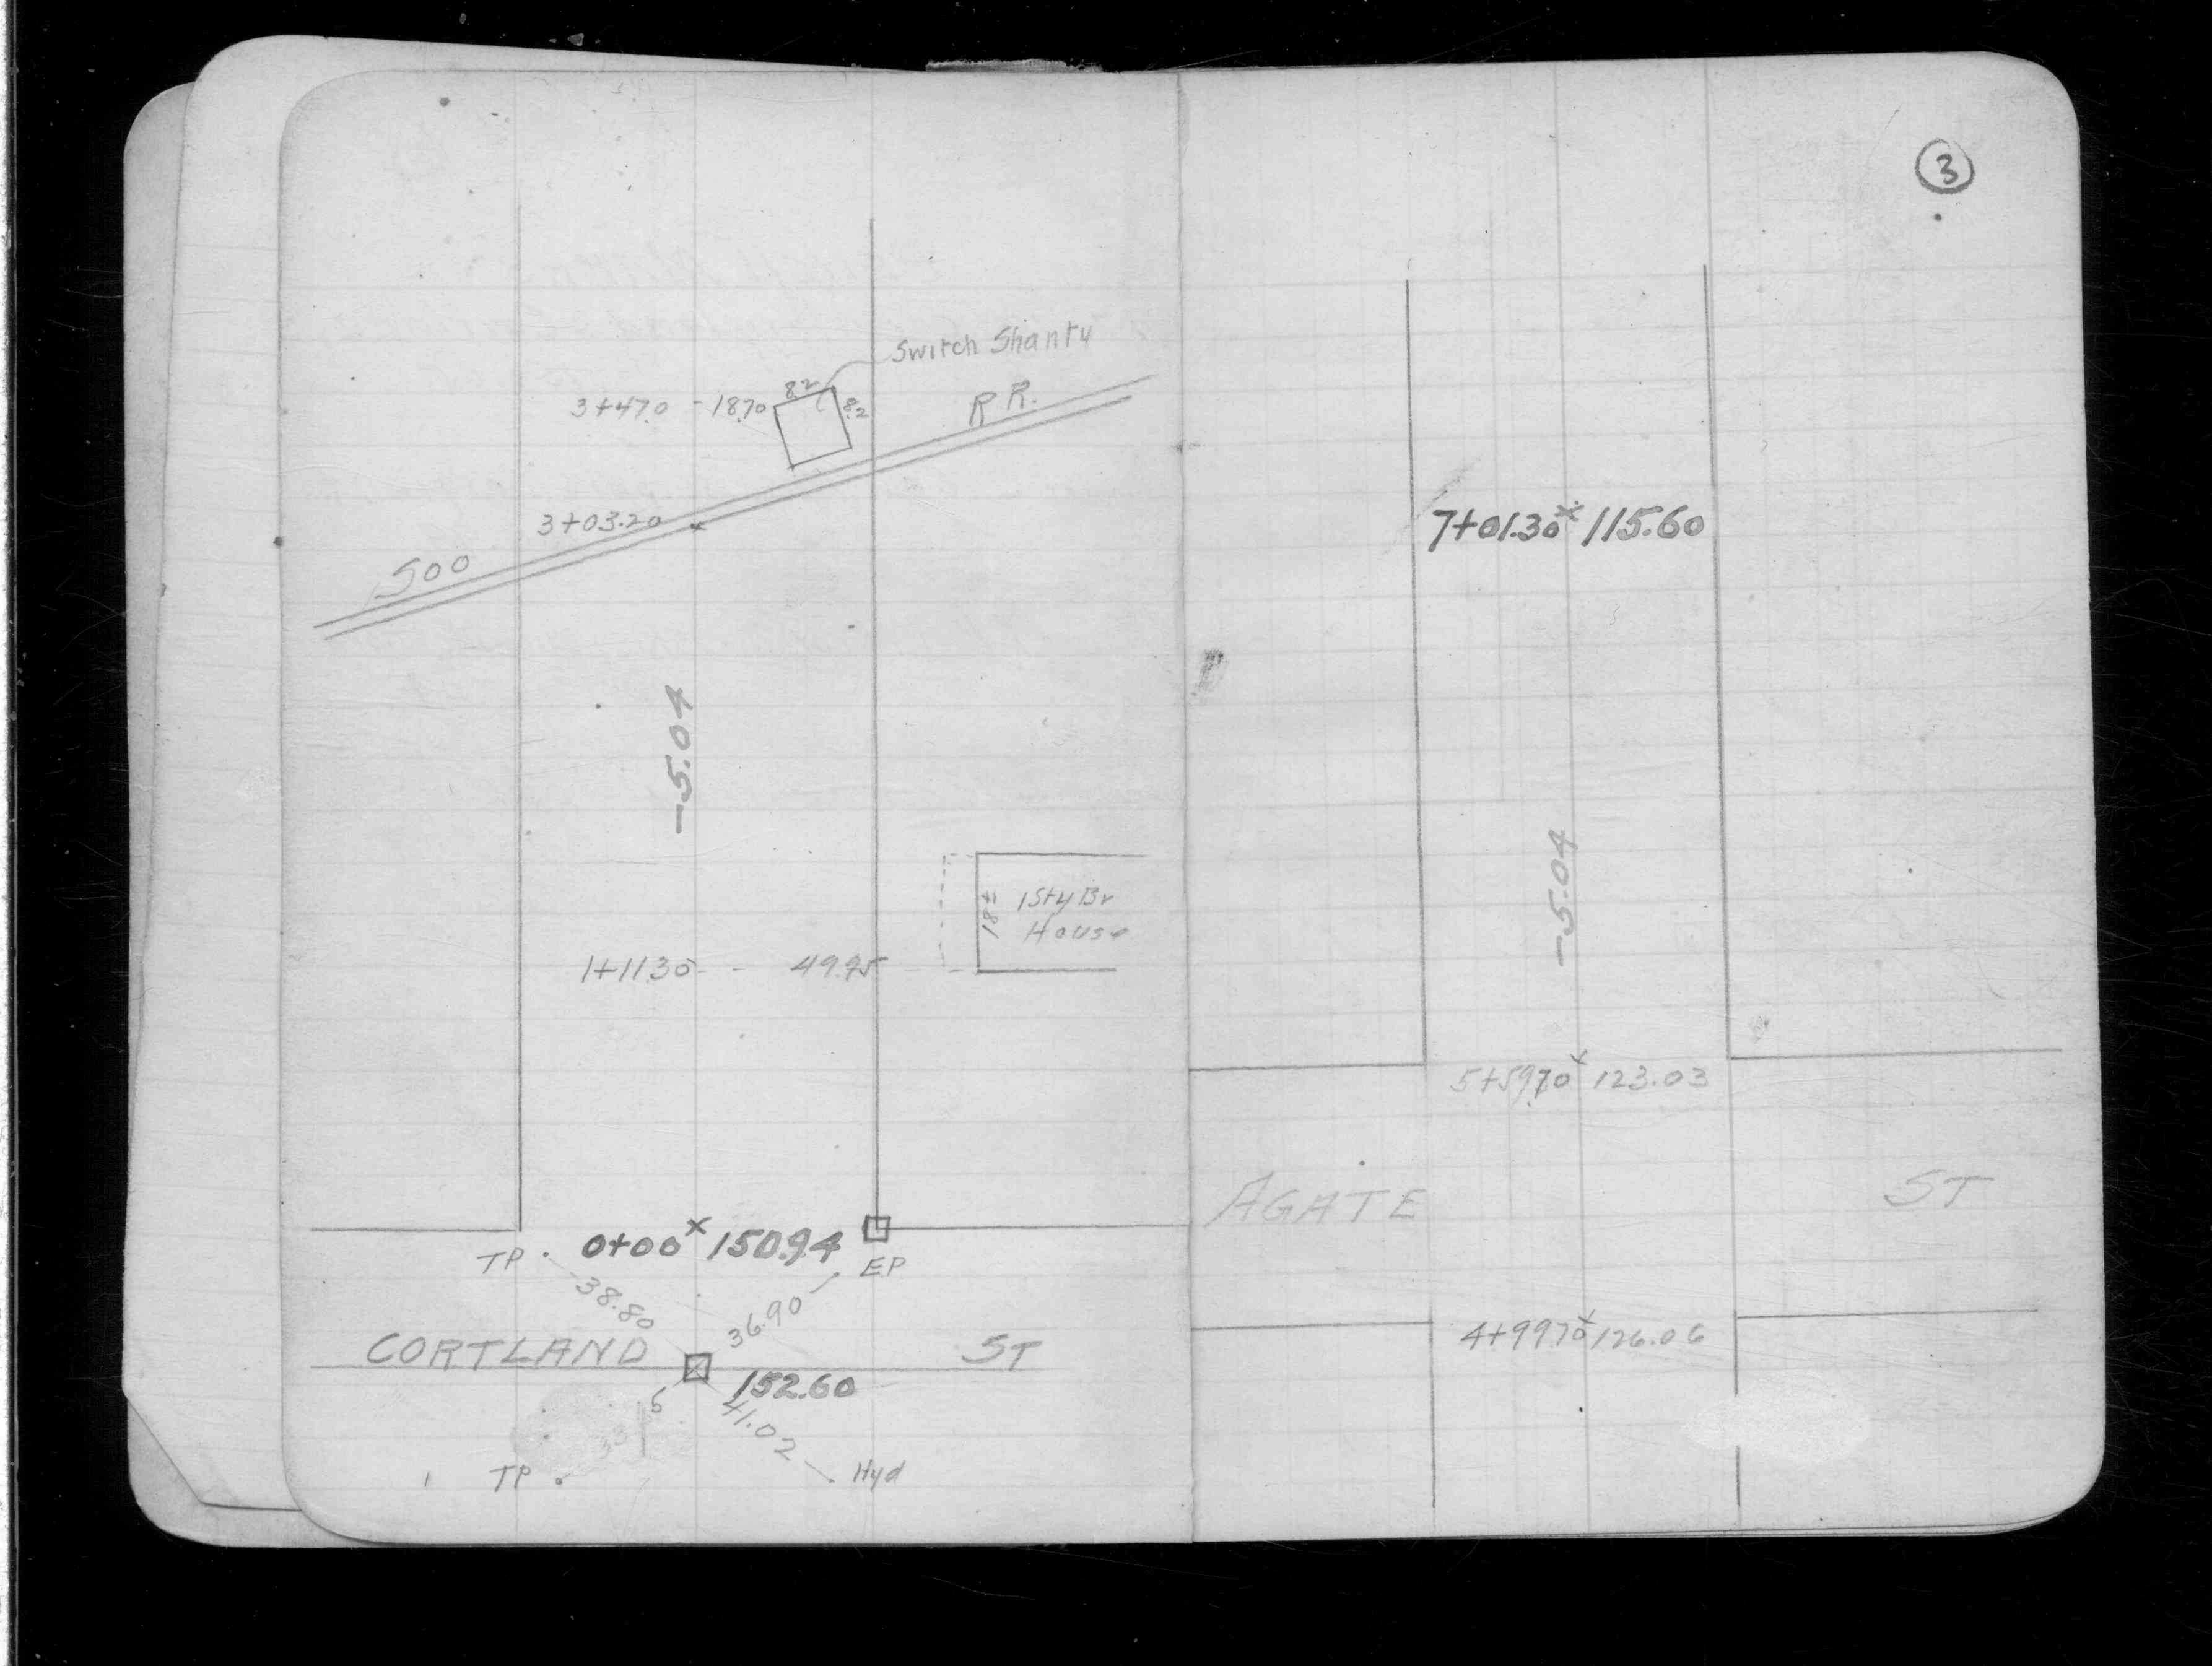 Switch Shanty
8.2
3+47.0 - 18.70
8.2
R R.
3+03.20
SOO
-5.04
18±
1 Sty Br
House
1+11.30 - 49.95
0+00 x 150.94
TP
EP
38.80
36.90
CORTLAND ST
152.60
41.02
TP
Hyd
3
7+01.30 x 115.60
-5.04
5+59.70 x 123.03
AGATE ST
4+99.70 x 126.06